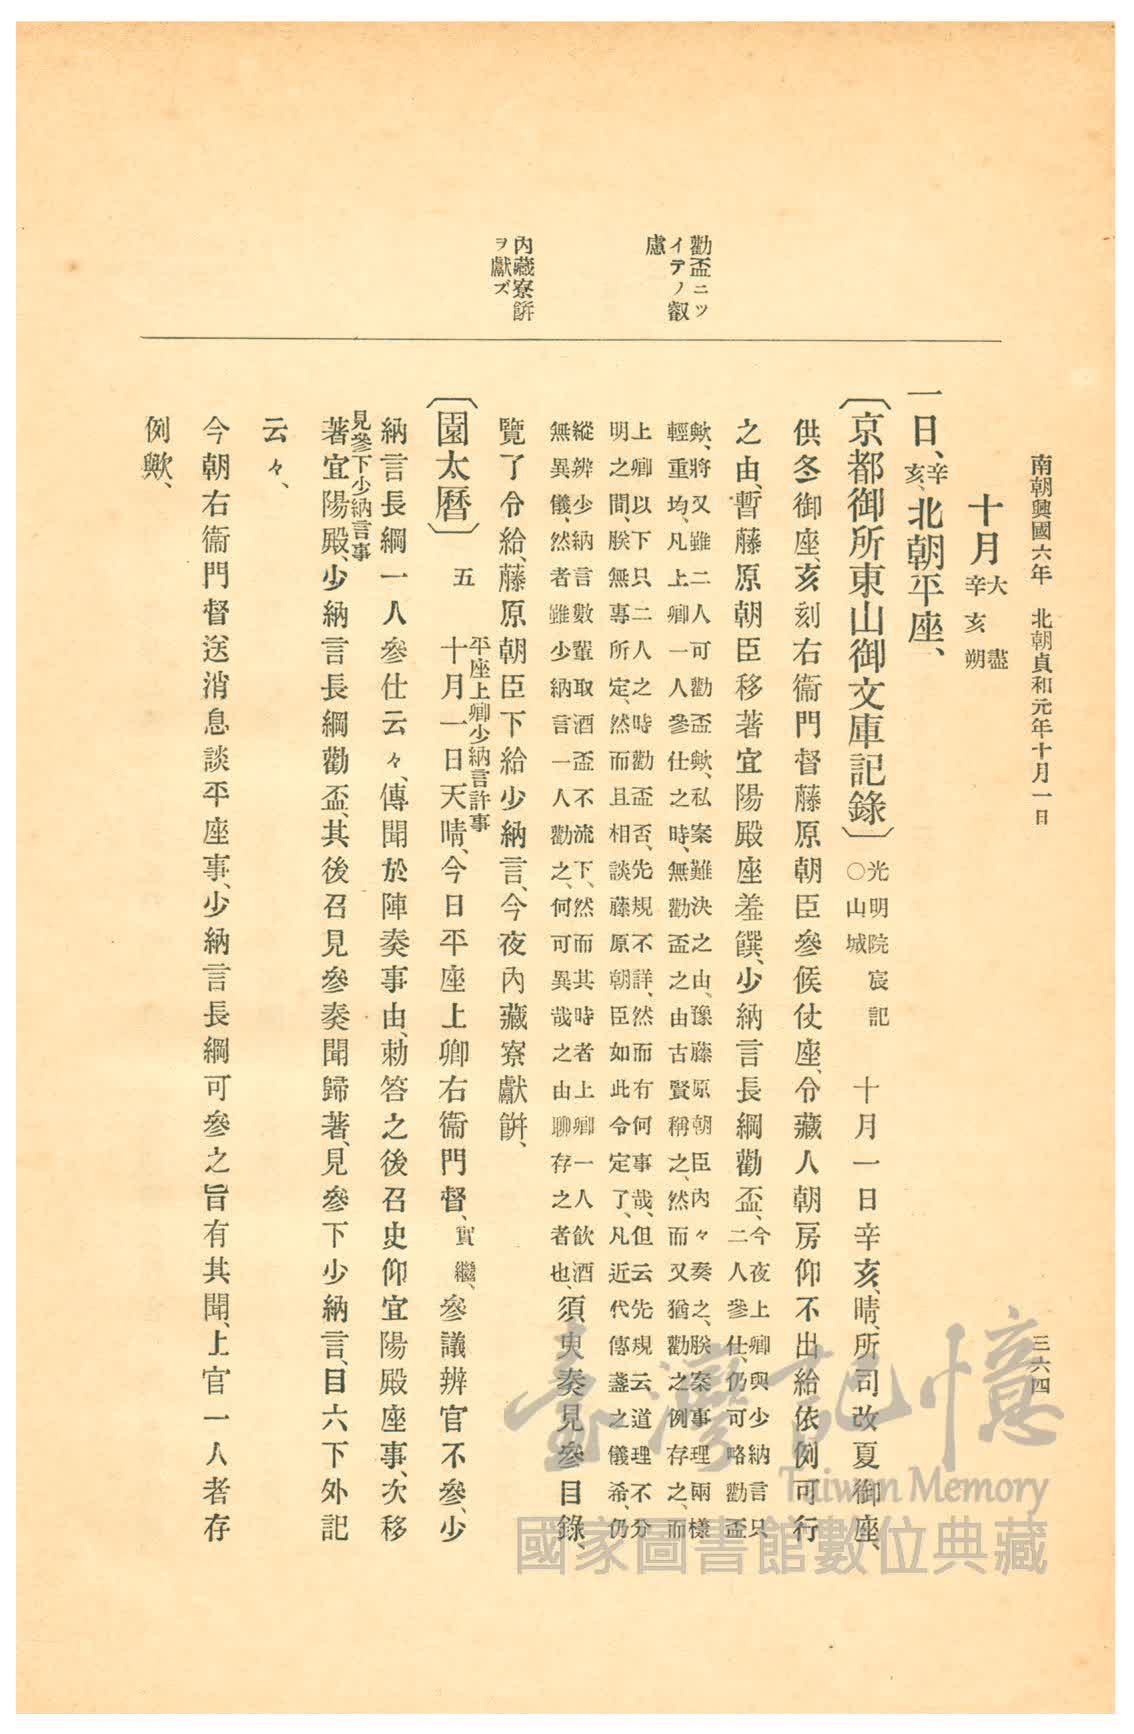 南朝興國六年　北朝貞和元年十月一日
三六四
勸盃ニツ
イテノ叡
慮
內藏寮餠
ヲ獻ズ
十月大盡
辛亥朔
一日、辛亥、北朝平座、
〔京都御所東山御文庫記錄〕光明院宸記
○山城　十月一日辛亥、晴、所司改夏御座、
供冬御座、亥刻右衞門督藤原朝臣參候仗座、令藏人朝房仰不出給依例可行
之由、暫藤原朝臣移著宜陽殿座羞饌、少納言長綱勸盃、今夜上卿與少納言只
二人參仕、仍可略勸盃
歟、將又雖二人可勸盃歟、私案難決之由、豫藤原朝臣內々奏之、朕案事理兩樣
輕重均、凡上卿一人參仕之時、無勸盃之由古賢稱之、然而又猶勸之例存之、而
上卿以下只二人之時勸盃否、先規不詳、然而有何事哉、但云先規云道理不分
明之間、朕無專所定、然而且相談藤原朝臣如此令定了、凡近代傳盞之儀希、仍
縱辨少納言數輩取酒盃不流下、然而其時者上卿一人飮酒
無異儀、然者雖少納言一人勸之、何可異哉之由聊存之者也、須臾奏見參目錄、
覽了令給、藤原朝臣下給少納言、今夜內藏寮獻餠、
〔園太曆〕　五　平座上卿少納言許事
十月一日天晴、今日平座上卿右衞門督、實繼、參議辨官不參、少
納言長綱一人參仕云々、傳聞於陣奏事由、勅答之後召史仰宜陽殿座事、次移
見參下少納言事
著宜陽殿、少納言長綱勸盃、其後召見參奏聞歸著、見參下少納言、目六下外記
云々、
今朝右衞門督送消息談平座事、少納言長綱可參之旨有其聞、上官一人者存
例歟、
臺灣記憶
Taiwan Memory
國家圖書館數位典藏